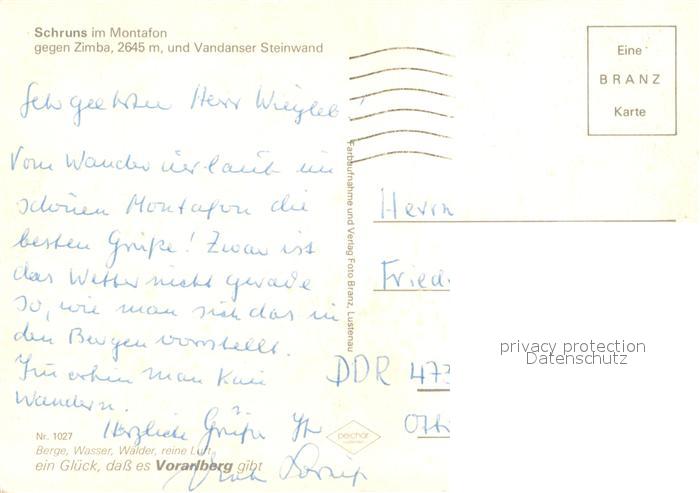 Schruns im Montafon
gegen Zimba, 2645 m, und Vandanser Steinwand
Eine
BRANZ
Karte
Sehr geehrter Herr Wiegleb!
Vom Wanderurlaub im
schönen Montafon die
besten Grüße! Zwar ist
das Wetter nicht gerade
so, wie man sich das in
den Bergen vorstellt.
Immerhin man kann
wandern.
Herzliche Grüße Ihr
Farbaufnahme und Verlag Foto Branz, Lustenau
Herrn
Fried
DDR 473
privacy protection
Datenschutz
Nr. 1027
Berge, Wasser, Wälder, reine Luft
ein Glück, daß es Vorarlberg gibt